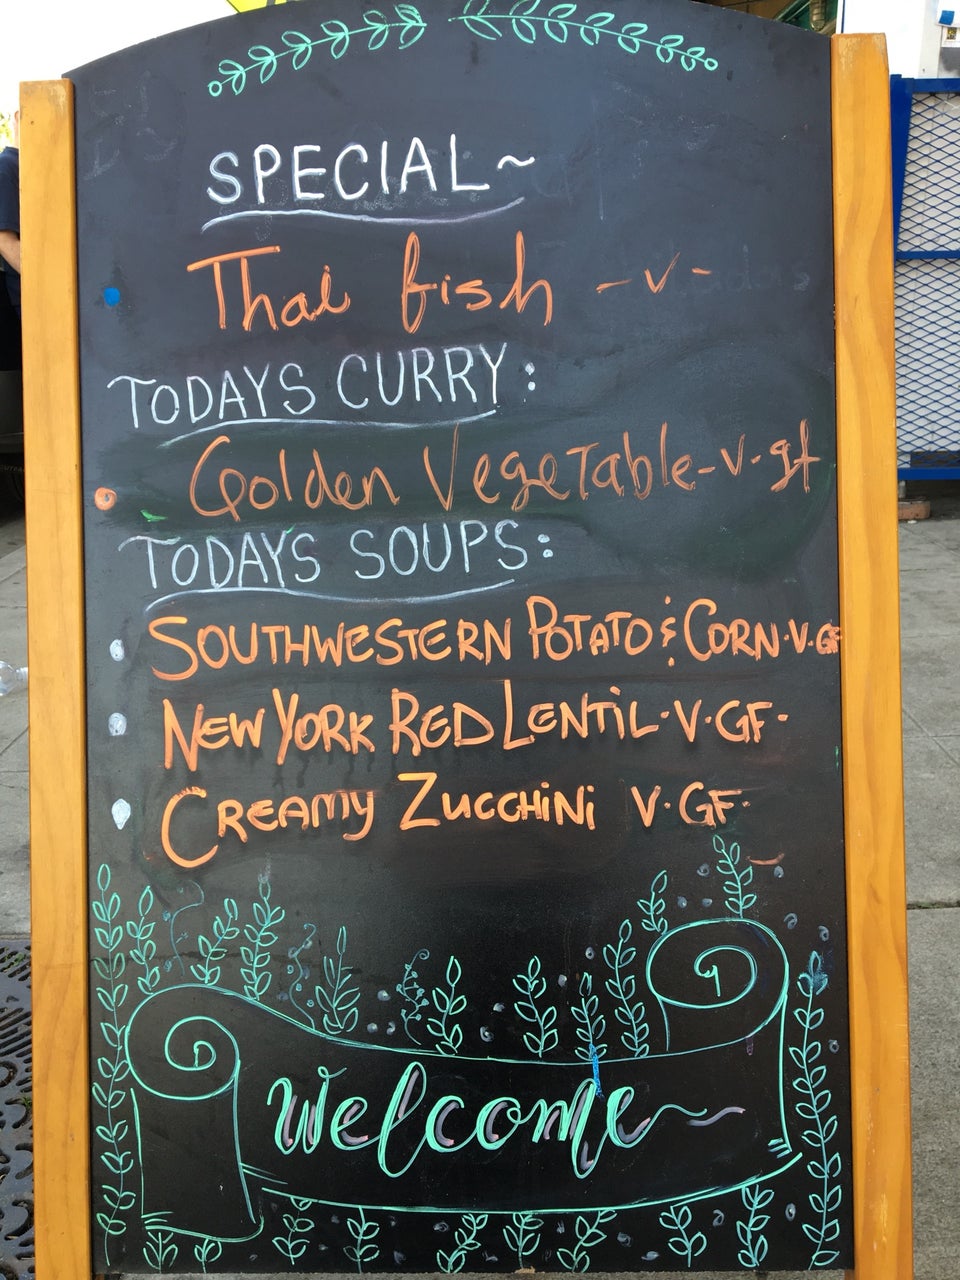 SPECIAL~
Thai fish -v-
TODAYS CURRY:
Golden Vegetable-v-gf
TODAYS SOUPS:
SOUTHWESTERN POTATO & CORN·V·GF
NEW YORK RED LENTIL·V·GF·
CREAMY ZUCCHINI V·GF·
Welcome~